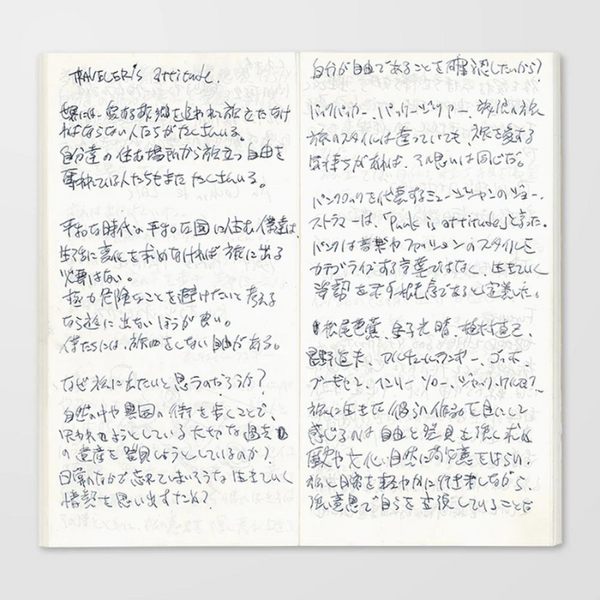 TRAVELER'S attitude.
世界には、愛する故郷を追われて旅をしなけ
ればならない人たちがたくさんいる。
自分達の住む場所から旅立つ自由を
奪われている人たちもまた たくさんいる。
平和な時代の平和な国に住む僕達は、
生活に変化を求めなければ旅に出る
必要はない。
極力危険なことを避けたいと考える
なら旅に出ないほうが良い。
僕たちには、旅をしない自由がある。
なぜ旅に出たいと思うのだろうか?
自然の中や異国の街を歩くことで、
失われようとしている大切な過去
の遺産を発見しようとしているのか?
日常のなかで忘れてしまいそうな生きていく
情熱を思い出すため?
自分が自由であることを確認したいから?
バックパッカー、パッケージツアー、放浪の旅
旅のスタイルは違っていても、旅を愛する
気持ちがあれば、その思いは同じだ。
パンクロックを代表するミュージシャンのジョー・
ストラマーは、「Punk is attitude」と言った。
パンクは音楽やファッションのスタイルを
カテゴライズする言葉ではなく、生きていく
姿勢を示す信念であると定義した。
松尾芭蕉、金子光晴、植村直己、
星野道夫、アルチュール・ランボー、ゴッホ、
ゴーギャン、ヘンリー・ソロー、ジャック・ケルアック…
旅に生きた彼らの作品を目にして
感じるのは自由と発見を強く求め
歴史や文化、自然に敬意をはらい、
旅に日常を軽やかに行き来しながら、
強い意思で自らを表現していることだ